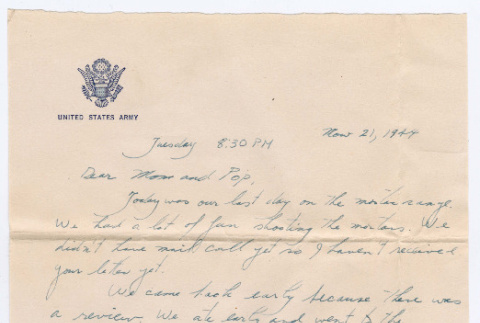 UNITED STATES ARMY
Tuesday 8:30 PM Nov 21, 1944
Dear Mom and Pop,
Today was our last day on the mortar range.
We had a lot of fun shooting the mortars. We
didn't have mail call yet so I haven't received
your letter yet.
We came back early because there was
a review. We ate early and went to the